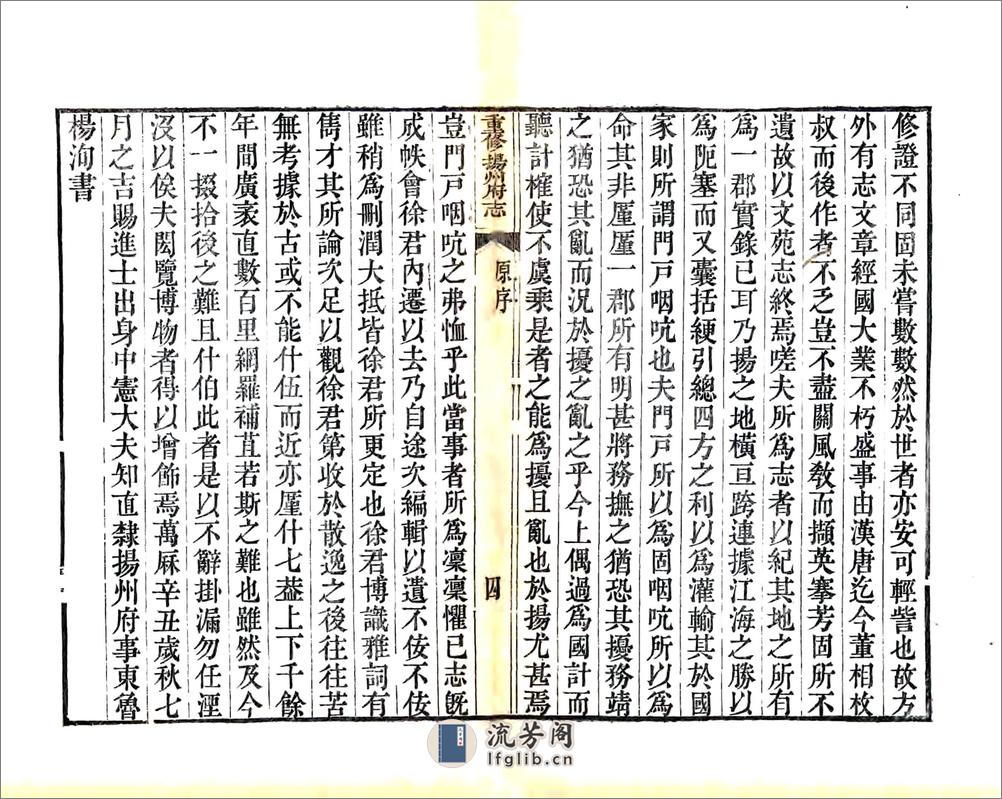 修證不同固未嘗數數然於世者亦安可輕訾也故方
外有志文章經國大業不朽盛事由漢唐迄今董相枚
叔而後作者不乏豈不盡關風敎而擷英搴芳固所不
遺故以文苑志終焉嗟夫所為志者以紀其地之所有
為一郡實錄已耳乃揚之地橫亘跨連據江海之勝以
為阨塞而又囊括綆引總四方之利以為灌輸其於國
家則所謂門戸咽吭也夫門戸所以為固咽吭所以為
命其非厪厪一郡所有明甚將務撫之猶恐其擾務靖
之猶恐其亂而況於擾之亂之乎今上偶過為國計而
聽計榷使不虞乘是者之能為擾且亂也於揚尤甚焉
重修揚州府志
原序
四
豈門戸咽吭之弗恤乎此當事者所為凜凜懼已志旣
成帙會徐君內遷以去乃自途次編輯以遺不佞不佞
雖稍為刪潤大抵皆徐君所更定也徐君博識雅詞有
雋才其所論次足以觀徐君第收於散逸之後往往苦
無考據於古或不能什伍而近亦厪什七葢上下千餘
年間廣袤直數百里網羅補苴若斯之難也雖然及今
不一掇拾後之難且什伯此者是以不辭掛漏勿任湮
沒以俟夫閎覽博物者得以增飾焉萬厤辛丑歲秋七
月之吉賜進士出身中憲大夫知直隸揚州府事東魯
楊洵書
流芳阁
lfglib.cn